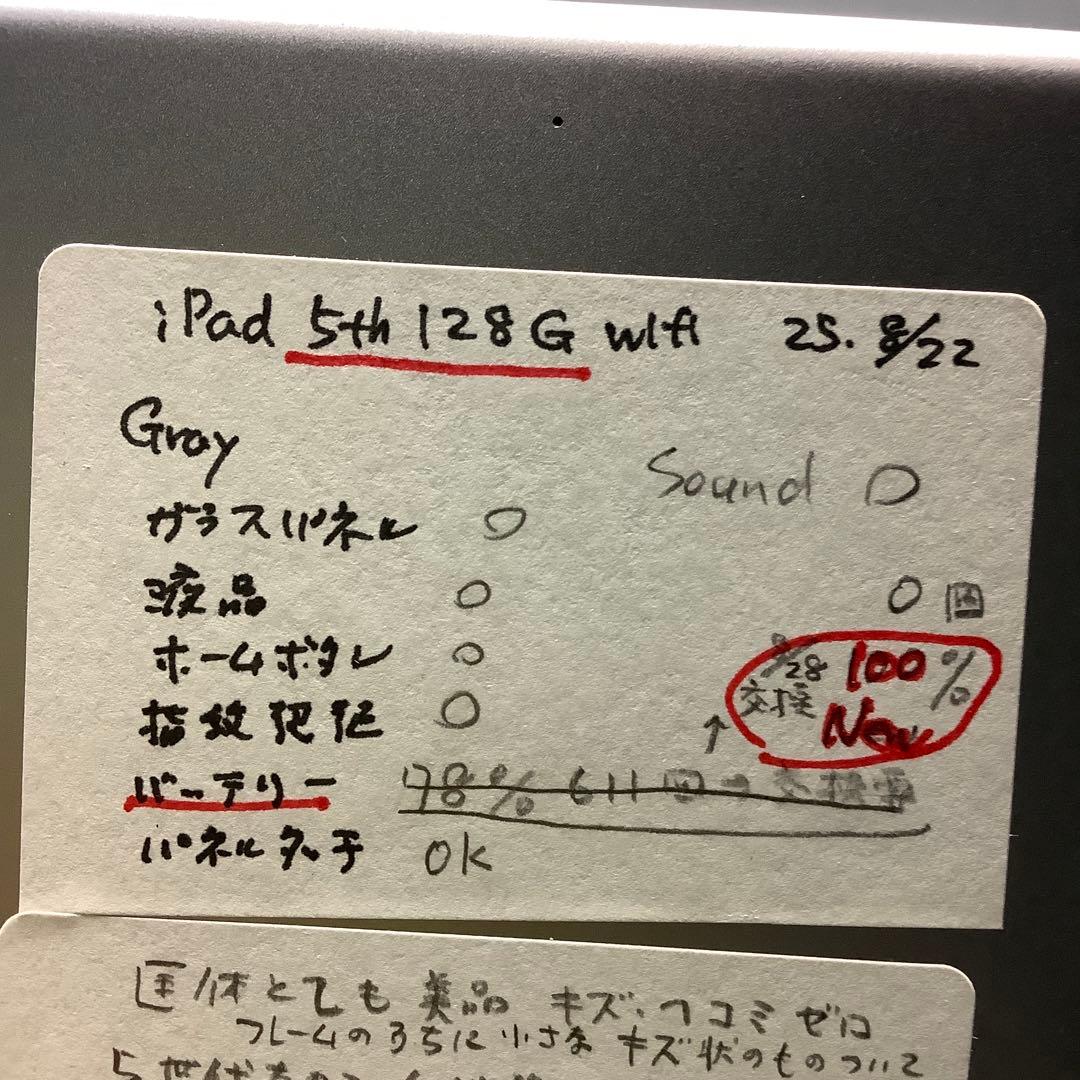 iPad 5th 128G wifi 25. 8/22
Gray
Sound ○
ガラスパネル ○
液晶 ○
0回
ホームボタン ○
8/28 100%
交換
New
指紋認証 ○
↑
バッテリー 78% 611回→交換
パネルタッチ OK
匡体とても美品 キズ、ヘコミゼロ
フレームのうちに小さなキズ状のものついて
5世代